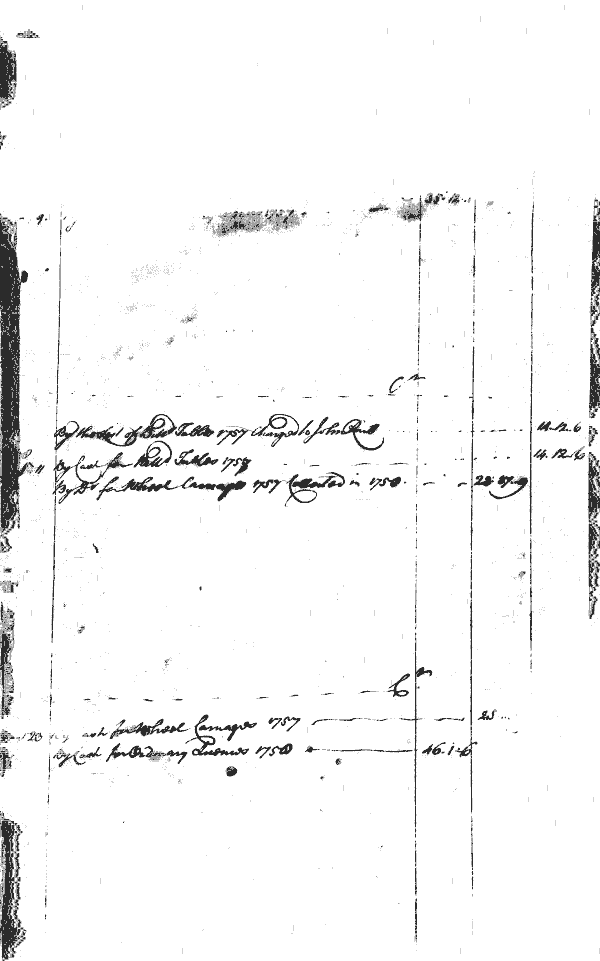 9 1757 35.12
Cr
By the Cost of Bill.d Tables 1757 Charged to John 14.12.6
11 By Cash for Bill.d Tables 1758 14.12.6
By Do for Wheel Carriages 1757 Collected in 1758 23.17.9
Cr
23 By Cash for Wheel Carriages 1757 25
By Cash for Ordinary Licences 1758 46.1.6